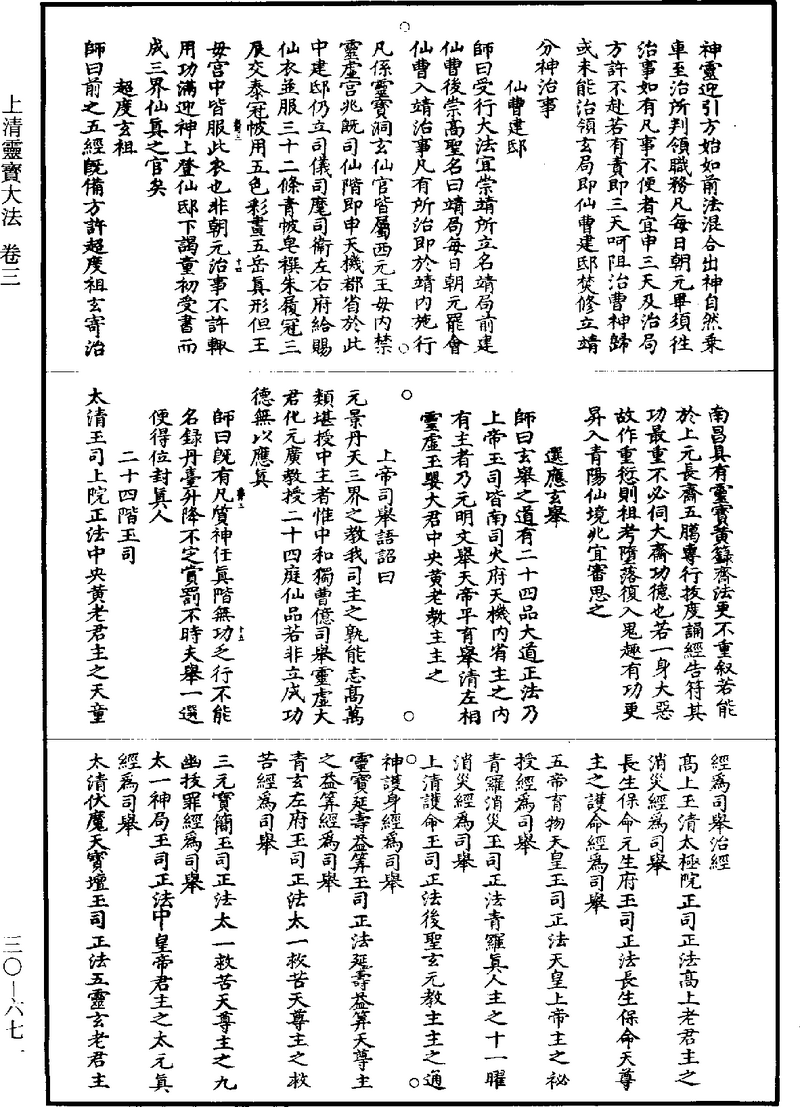 上清靈寶大法　卷三
三〇—六七
神靈迎引方始如前法混合出神自然乘
車至治所判領職務凡每日朝元畢須徃
治事如有凡事不便者宜申三天及治局
方許不赴若有責即三天呵阻治曹神歸
或未能治領玄局即仙曹建邸焚修立靖
分神治事
仙曹建邸
師曰受行大法宜崇靖所立名靖局前建
仙曹後崇高聖名曰靖局每日朝元罷會
仙曹入靖治事凡有所治即於靖内施行
凡係靈寶洞玄仙官皆屬西元王母内禁
靈虛宮兆既司仙階即申天機都省於此
中建邸仍立司儀司麾司衛左右府給賜
仙衣並服三十二條青帔皂襈朱履冠三
展交泰冠帔用五色彩畫五岳真形但王
母宮中皆服此衣也非朝元治事不許輙
用功滿迎神上登仙邸下謁童初受書而
成三界仙真之官矣
超度玄祖
師曰前之五經既備方許超度祖玄寄治
南昌具有靈寶黃籙齋法更不重叙若能
於上元長齋五臈專行拔度誦經告符其
功最重不必伺大齋功德也若一身大惡
故作重愆則祖考墮落復入鬼趣有功更
昇入青陽仙境兆宜審思之
選應玄舉
師曰玄舉之道有二十四品大道正法乃
上帝玉司皆南司火府天機内省主之内
有主者乃元明文舉天帝平育舉清左相
靈虛玉嬰大君中央黃老教主主之
上帝司舉語詔曰
元景丹天三界之教我司主之孰能志高萬
類堪授中主者惟中和獨曹億司舉靈虛大
君化元廣教授二十四庭仙品若非立成功
德無以應真
師曰既有凡質神任真階無功乏行不能
名錄丹臺升降不定賞罰不時夫舉一選
便得位封真人
二十四階玉司
太清玉司上院正法中央黃老君主之天童
經為司舉治經
高上玉清太極院正司正法高上老君主之
消災經為司舉
長生保命元生府玉司正法長生保命天尊
主之護命經為司舉
五帝育物天皇玉司正法天皇上帝主之祕
授經為司舉
青羅消災玉司正法青羅真人主之十一曜
消災經為司舉
上清護命玉司正法後聖玄元教主主之通
神護身經為司舉
靈寶延壽益筭玉司正法延壽益筭天尊主
之益筭經為司舉
青玄左府玉司正法太一救苦天尊主之救
苦經為司舉
三元寶簡玉司正法太一救苦天尊主之九
幽拔罪經為司舉
太一神局玉司正法中皇帝君主之太元真
經為司舉
太清伏魔天寶壇玉司正法五靈玄老君主